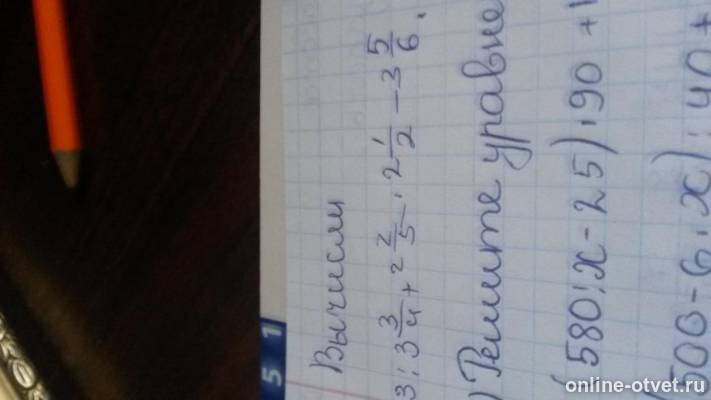 5 1
Вычисли
3 : 3 3/4 + 2 2/5 · 2 1/2 - 3 5/6 .
) Решите уравне
(580 : x - 25) · 90 +
500 - 6 · x) : 40 +
online-otvet.ru